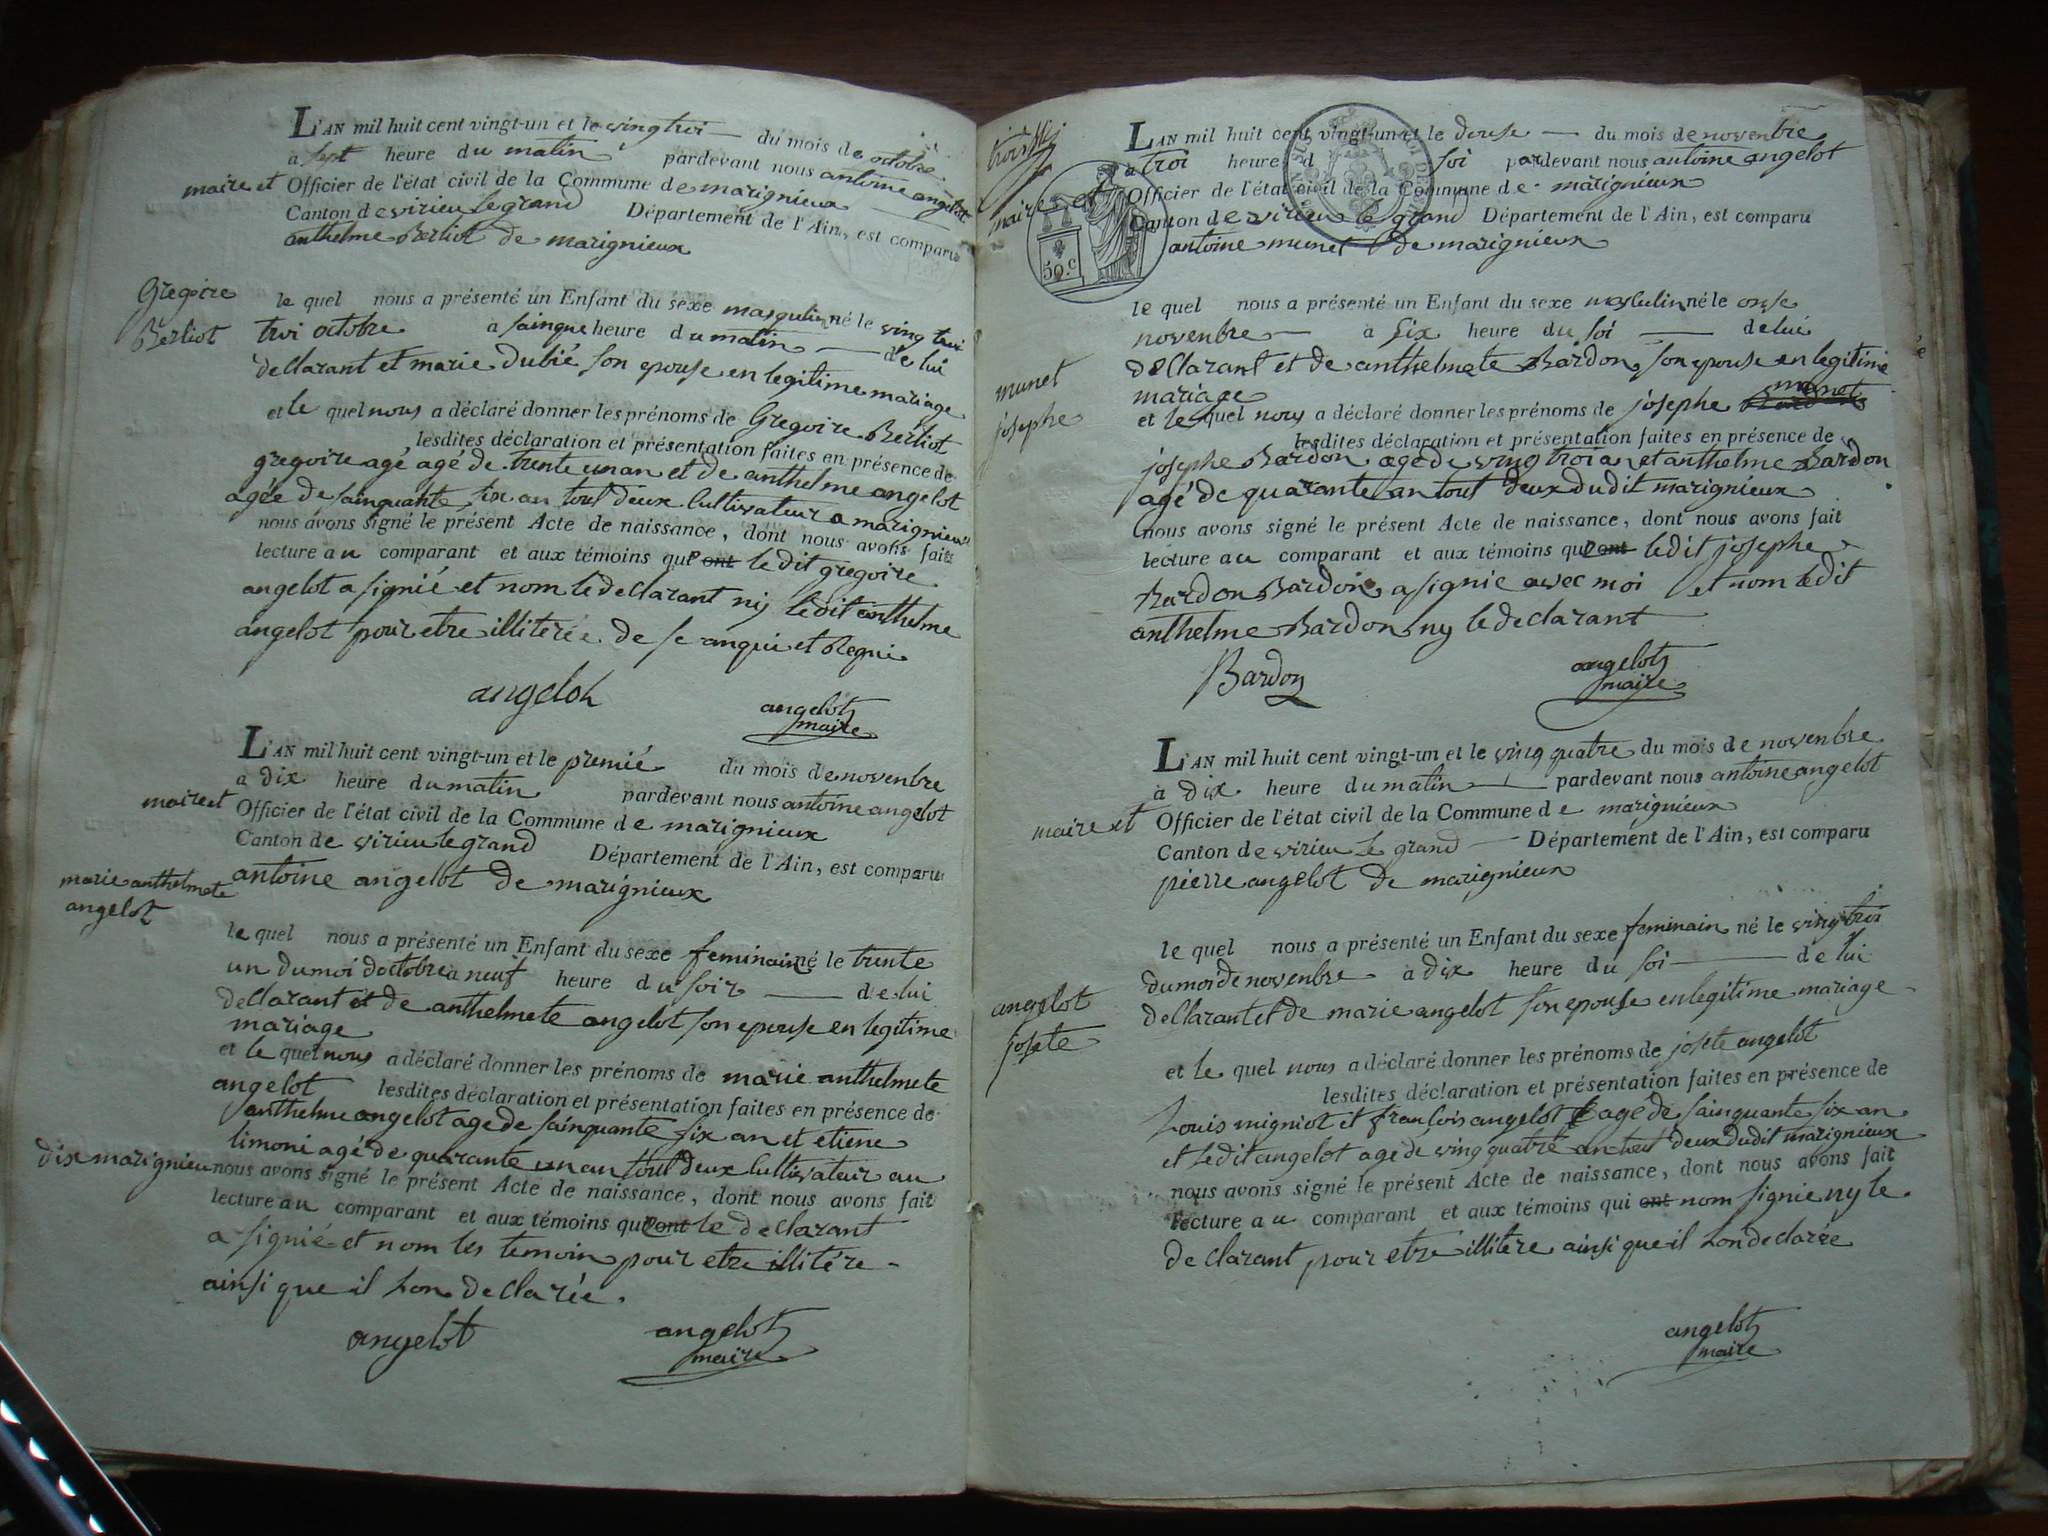 L'AN mil huit cent vingt-un et le ving troi du mois de octobre
a sept heure du matin pardevant nous antoine angelot
maire et Officier de l'état civil de la Commune de marignieux
Canton de virieu le grand Département de l'Ain, est comparu
anthelme Berliot de marignieux
Gregoire
Berliot
le quel nous a présenté un Enfant du sexe masqulin né le ving troi
troi octobre a sainque heure du matin de lui
declarant et marie dubié son epouse en legitime mariage
et le quel nous a déclaré donner les prénoms de Gregoire Berliot
lesdites déclaration et présentation faites en présence de
gregoire agé agé de trente un an et de anthelme angelot
agée de sainquante six an tout deux cultivateur a marignieux
nous avons signé le présent Acte de naissance, dont nous avons fait
lecture au comparant et aux témoins qui ont le dit gregoire
angelot a signié et nom le declarant ny le dit anthelme
angelot pour etre illiterée de se anquis et Requis
angelot angelot
maire
L'AN mil huit cent vingt-un et le premié du mois de novenbre
a dix heure du matin pardevant nous antoine angelot
maire et Officier de l'état civil de la Commune de marignieux
Canton de virieu le grand Département de l'Ain, est comparu
antoine angelot de marignieux
marie anthelmete
angelot
le quel nous a présenté un Enfant du sexe feminain né le trente
un du moi doctobre a neuf heure du soir de lui
declarant et de anthelmete angelot son epouse en legitime
mariage
et le quel nous a déclaré donner les prénoms de marie anthelmete
angelot lesdites déclaration et présentation faites en présence de
anthelme angelot age de sainquante six an et etiene
limoni agé de quarante un an tout deux cultivateur au
dix marignieu nous avons signé le présent Acte de naissance, dont nous avons fait
lecture au comparant et aux témoins qui ont le declarant
a signié et nom les temoin pour etre illitére
ainsi que il lon declarée.
angelot angelot
maire
trois
50.c
L'AN mil huit cent vingt-un et le douse du mois de novenbre
à troi heure d soi pardevant nous antoine angelot
maire et Officier de l'état civil de la Commune de marignieux
Canton de virieu le grand Département de l'Ain, est comparu
antoine munet de marignieux
le quel nous a présenté un Enfant du sexe masculin né le onse
novenbre à six heure du soi de lui
munet
josephe
declarant et de anthelmete Bardon son epouse en legitime
mariage
munet
et le quel nous a déclaré donner les prénoms de josephe Bardon
lesdites déclaration et présentation faites en présence de
josephe Bardon age de ving troi an et anthelme Bardon
agé de quarante an tout deux dudit marignieux
nous avons signé le présent Acte de naissance, dont nous avons fait
lecture au comparant et aux témoins qui ont le dit josephe
Bardon Bardon a signie avec moi et nom le dit
anthelme Bardon ny le declarant
Bardon angelot
maire
L'AN mil huit cent vingt-un et le ving quatre du mois de novenbre
à dix heure du matin pardevant nous antoine angelot
maire et Officier de l'état civil de la Commune de marignieux
Canton de virieu le grand Département de l'Ain, est comparu
pierre angelot de marignieux
le quel nous a présenté un Enfant du sexe feminain né le ving troi
du moi de novenbre à dix heure du soi de lui
angelot
josete
declarant et de marie angelot son epouse en legitime mariage
et le quel nous a déclaré donner les prénoms de josete angelot
lesdites déclaration et présentation faites en présence de
Louis migniot et françois angelot agé de sainquante six an
et ledit angelot age de ving quatre an tout deux dudit marignieux
nous avons signé le présent Acte de naissance, dont nous avons fait
lecture au comparant et aux témoins qui ont nom signie ny le
declarant pour etre illitére ainsi que il lon declarée
angelot
maire